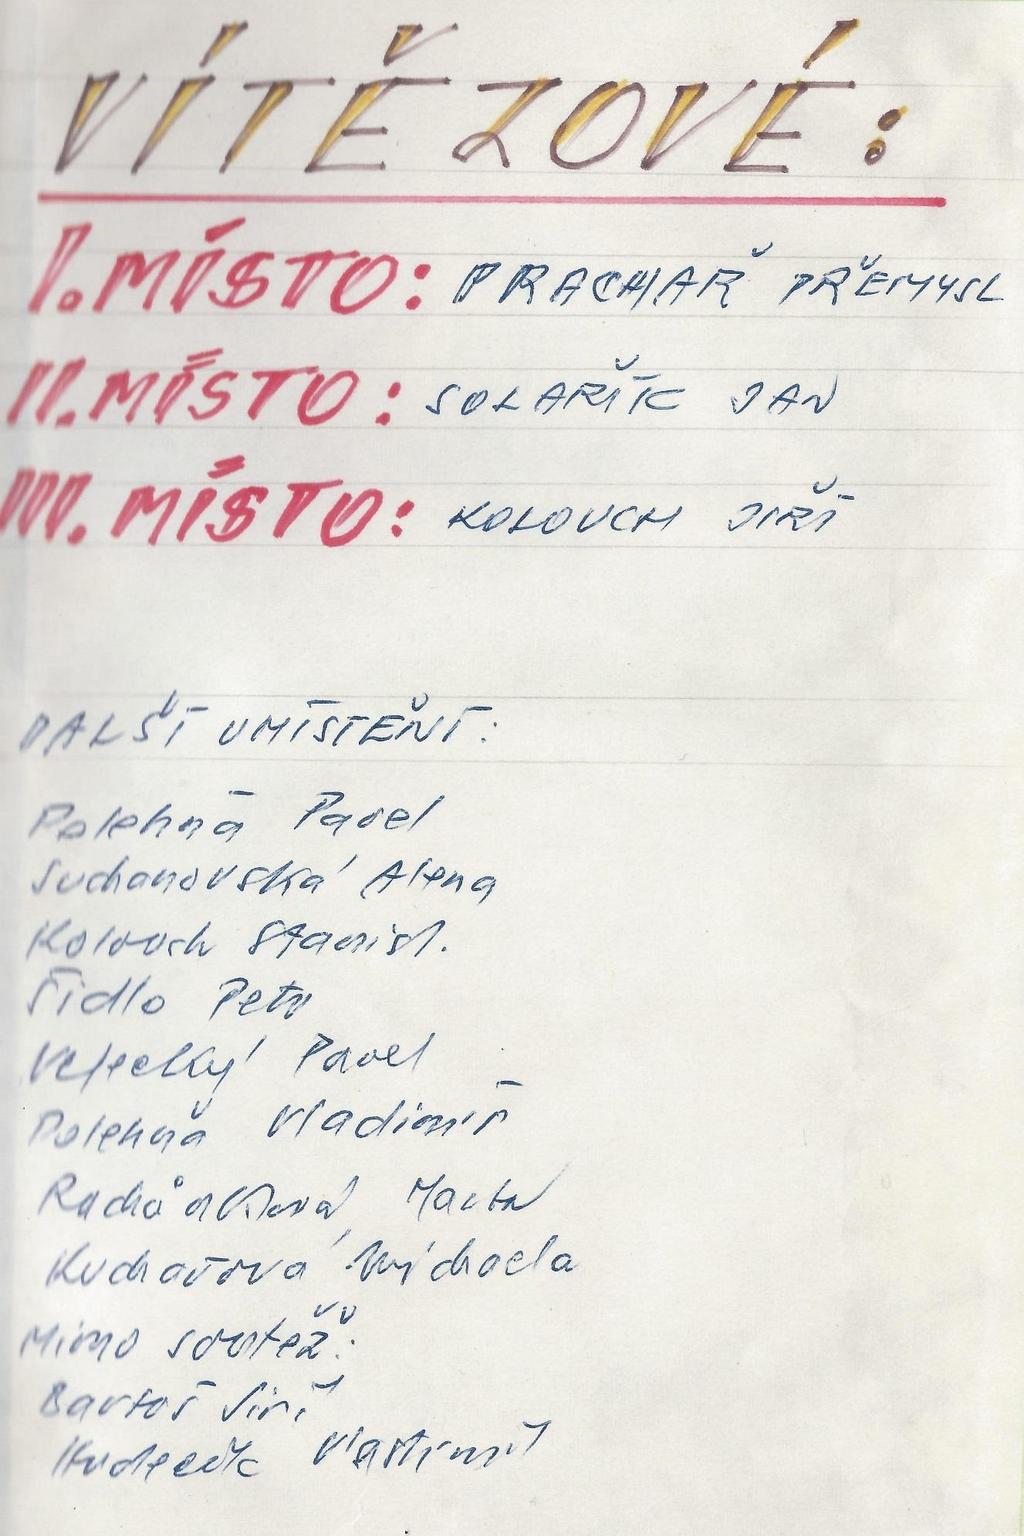 VÍTĚZOVÉ:
I. MÍSTO: PRACHAŘ PŘEMYSL
II. MÍSTO: SOLAŘÍK JAN
III. MÍSTO: KOLOUCH JIŘÍ
DALŠÍ UMÍSTĚNÍ:
Polehňa Pavel
Suchanovská Alena
Kolouch Stanisl.
Šidlo Petr
Velecký Pavel
Polehňa Vladimír
Marta
Kuchařová Michaela
Mimo soutěž:
Bartoš Jiří
Hudeček Vlastimil